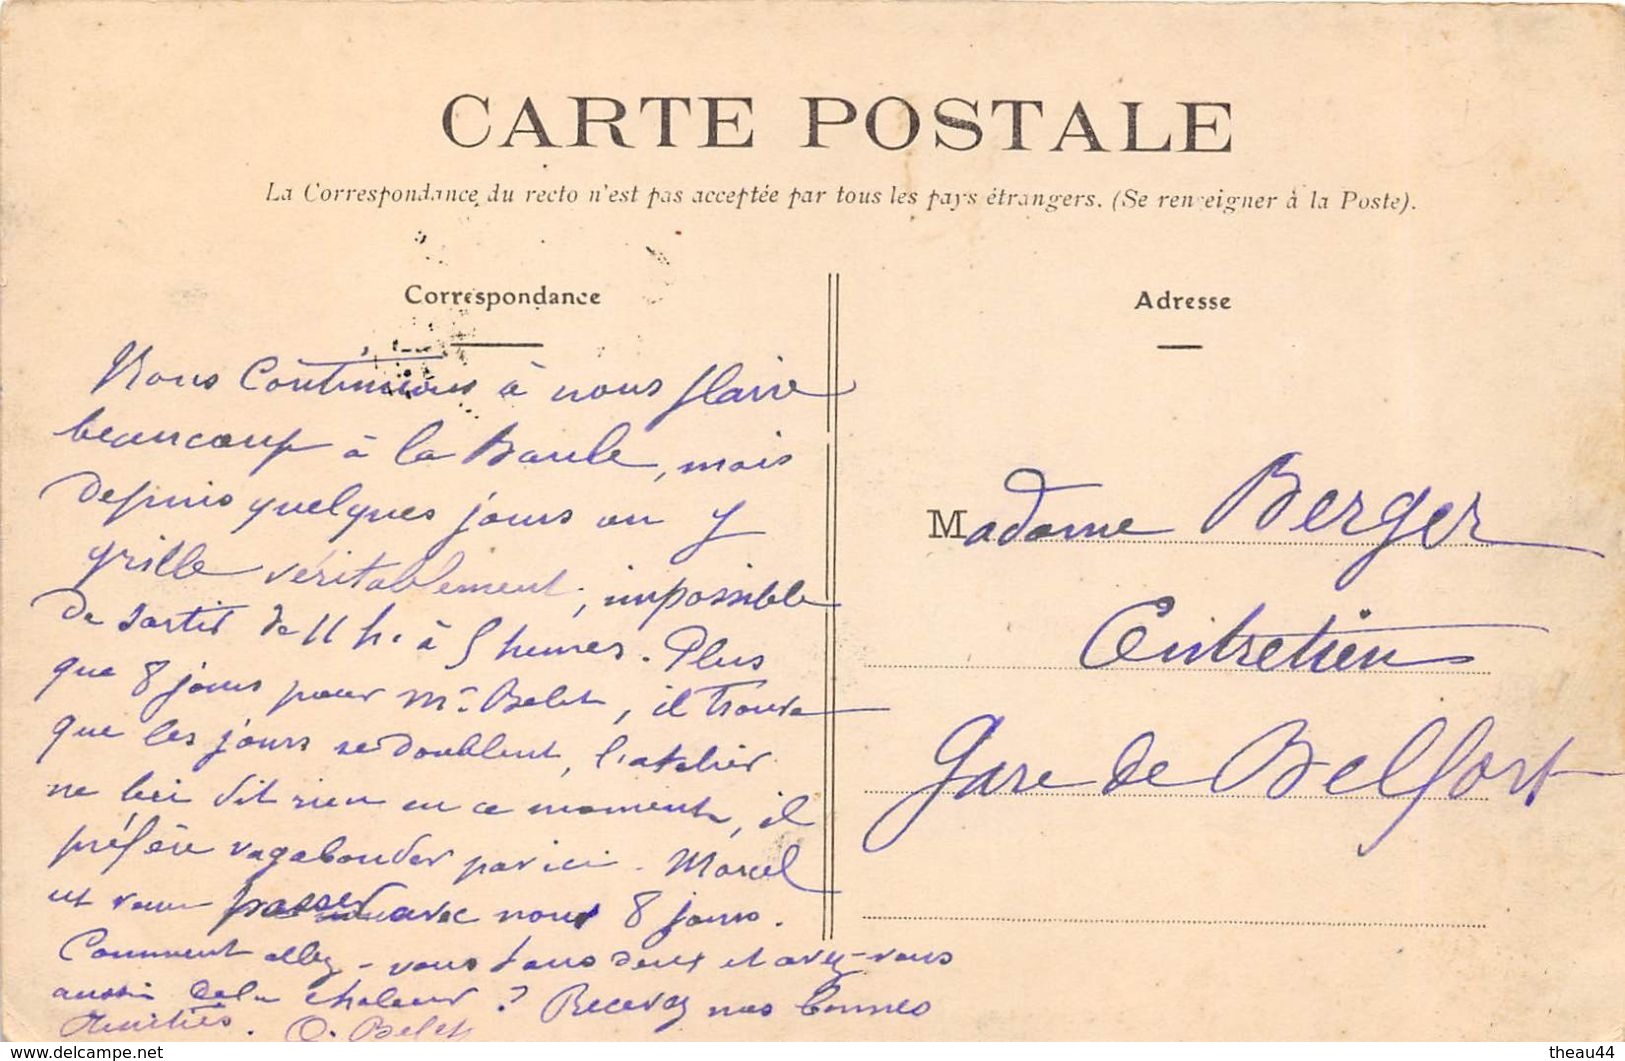 CARTE POSTALE
La Correspondance du recto n'est pas acceptée par tous les pays étrangers. (Se renseigner à la Poste).
Correspondance
Nous Continuons à nous plaire
beaucoup à la Baule, mais
depuis quelques jours on y
grille véritablement, impossible
de sortir de 11 h. à 5 heures. Plus
que 8 jours pour Mr Belet, il trouve
que les jours se doublent, l'atelier
ne lui dit rien en ce moment, il
préfère vagabonder par ici. Marcel
est venu passer avec nous 8 jours.
Comment allez-vous tous deux et avez-vous
aussi cette chaleur ? Recevez nos bonnes
Amitiés. O. Belet
Adresse
Madame Berger
Entretien
Gare de Belfort
www.delcampe.net
theau44